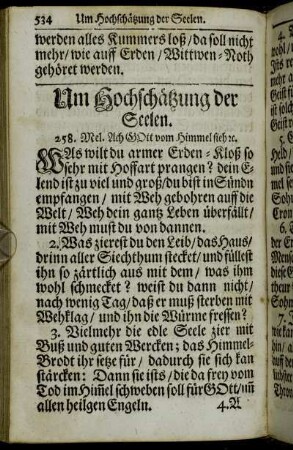 534 Um Hochschätzung der Seelen.
werden alles Kummers loß/ da soll nicht
mehr/ wie auff Erden/ Wittwen-Noth
gehöret werden.
Um Hochschätzung der
Seelen.
258. Mel. Ach GOtt vom Himmel sieh ꝛc.
WAs wilt du armer Erden-Kloß so
sehr mit Hoffart prangen? dein E-
lend ist zu viel und groß/ du bist in Sündn
empfangen/ mit Weh gebohren auff die
Welt/ Weh dein gantz Leben überfällt/
mit Weh must du von dannen.
2. Was zierest du den Leib/ das Haus/
drinn aller Siechthum stecket/ und füllest
ihn so zärtlich aus mit dem/ was ihm
wohl schmecket? weist du dann nicht/
nach wenig Tag/ daß er muß sterben mit
Wehklag/ und ihn die Würme fressen?
3. Vielmehr die edle Seele zier mit
Buß und guten Wercken; das Himmel-
Brodt ihr setze für/ dadurch sie sich kan
stärcken: Dann sie ists/ die da frey vom
Tod im Him̃el schweben soll für GOtt/ uñ
allen heilgen Engeln.
4. A